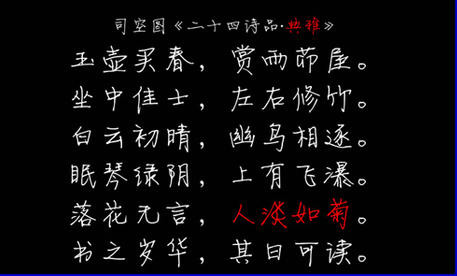 司空图《二十四诗品·典雅》
玉壶买春，赏雨茆屋。
坐中佳士，左右修竹。
白云初晴，幽鸟相逐。
眠琴绿阴，上有飞瀑。
落花无言，人淡如菊。
书之岁华，其曰可读。